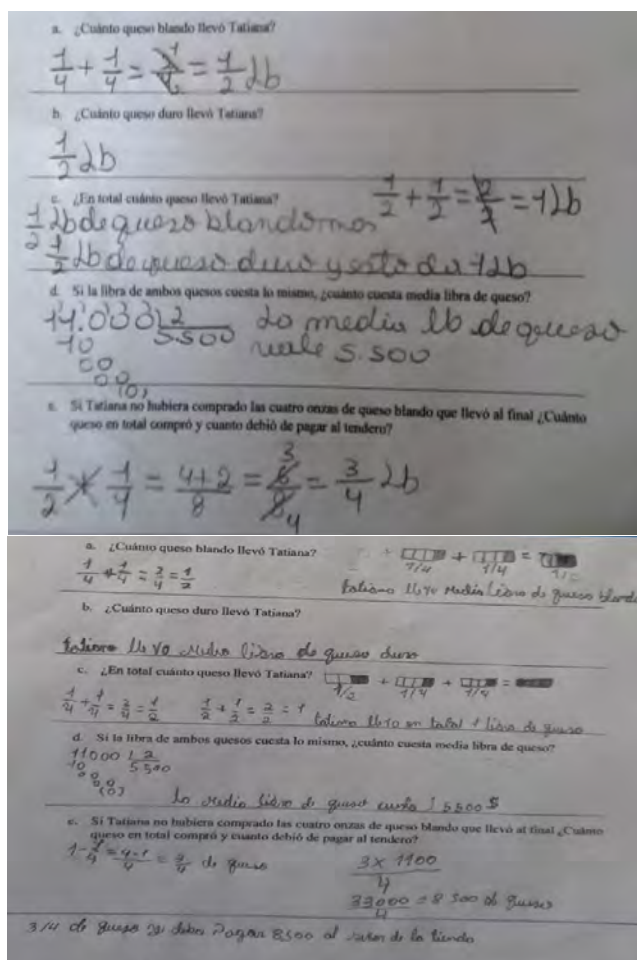 a. ¿Cuánto queso blando llevó Tatiana?
1/4 + 1/4 = 2/4 = 1/2 Lb
b. ¿Cuánto queso duro llevó Tatiana?
1/2 Lb
c. ¿En total cuánto queso llevó Tatiana?
1/2 + 1/2 = 2/2 = 1 Lb
1/2 Lb de queso blando mas
1/2 Lb de queso duro y esto da 1 Lb
d. Si la libra de ambos quesos cuesta lo mismo, ¿cuánto cuesta media libra de queso?
11.000 2 La media lb de queso
10 5.500 vale 5.500
00
00
(0)
e. Si Tatiana no hubiera comprado las cuatro onzas de queso blando que llevó al final ¿Cuánto
queso en total compró y cuanto debió de pagar al tendero?
1/2 + 1/4 = 4+2/8 = 6/8 3/4 = 3/4 Lb
a. ¿Cuánto queso blando llevó Tatiana?
1/4 + 1/4 = 2/4 = 1/2
+ 1/4 + 1/4 = 1/2
tatiana llevo media libra de queso blando
b. ¿Cuánto queso duro llevó Tatiana?
tatiana llevo media libra de queso duro
c. ¿En total cuánto queso llevó Tatiana?
1/2 + 1/4 + 1/4 =
1/4 + 1/4 = 2/4 = 1/2 1/2 + 1/2 = 2/2 = 1 tatiana llevo en total 1 libra de queso
d. Si la libra de ambos quesos cuesta lo mismo, ¿cuánto cuesta media libra de queso?
11000 2
10 5500
00
0
(0)
la media libra de queso cuesta 5500 $
e. Si Tatiana no hubiera comprado las cuatro onzas de queso blando que llevó al final ¿Cuánto
queso en total compró y cuanto debió de pagar al tendero?
1 - 1/4 = 4-1/4 = 3/4 de queso
3 x 1100/4
33000/4 = 8 500 de queso
3/4 de queso debe Pagar 8500 al de la tienda